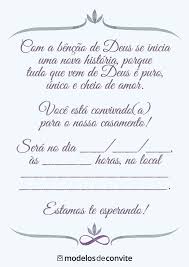 Com a bênção de Deus se inicia
uma nova história, porque
tudo que vem de Deus é puro,
único e cheio de amor.
Você está convidado(a)
para o nosso casamento!
Será no dia ____/____/____,
às ______ horas, no local
Estamos te esperando!
modelosdeconvite